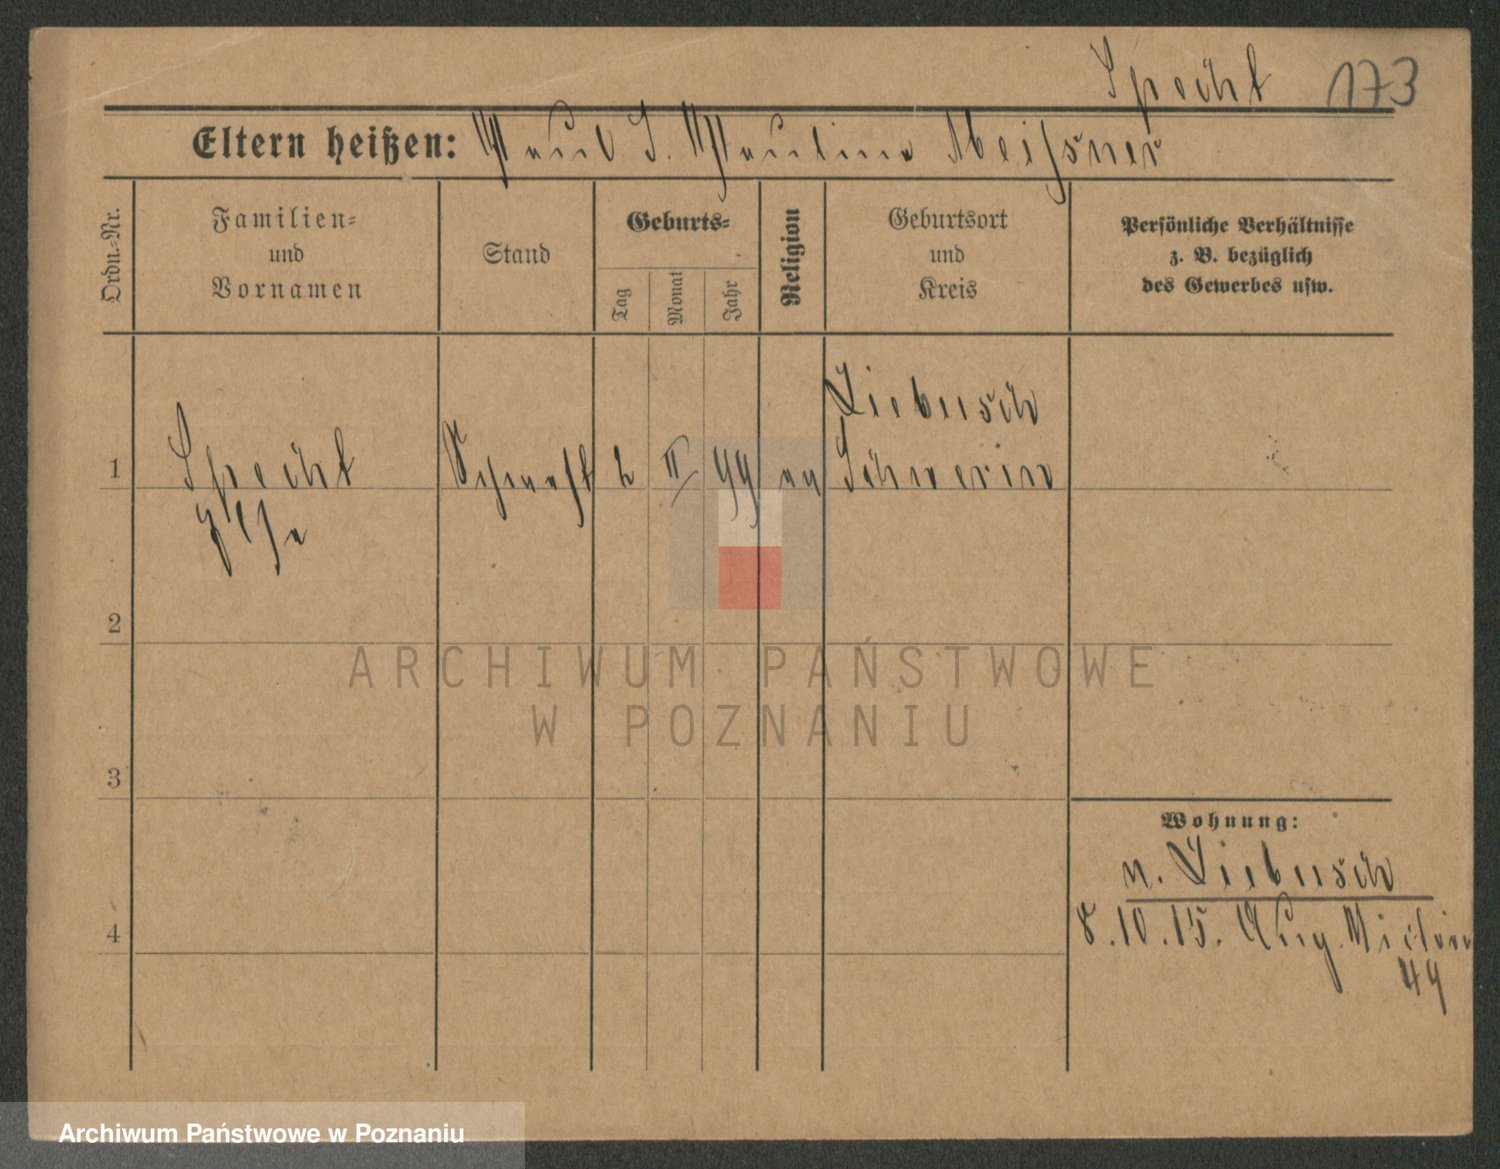 Specht 173
Eltern heißen: Paul S. Pauline Meißner
Ordn.-Nr.
Familien-
und
Vornamen
Stand
Geburts-
Tag
Monat
Jahr
Religion
Geburtsort
und
Kreis
Persönliche Verhältnisse
z. B. bezüglich
des Gewerbes usw.
Liebusch
1 Specht II 99 ev Schwerin
Else
2
ARCHIWUM PAŃSTWOWE
W POZNANIU
3
Wohnung:
n. Liebusch
4
8.10.15. Aug. Victoria
44
Archiwum Państwowe w Poznaniu